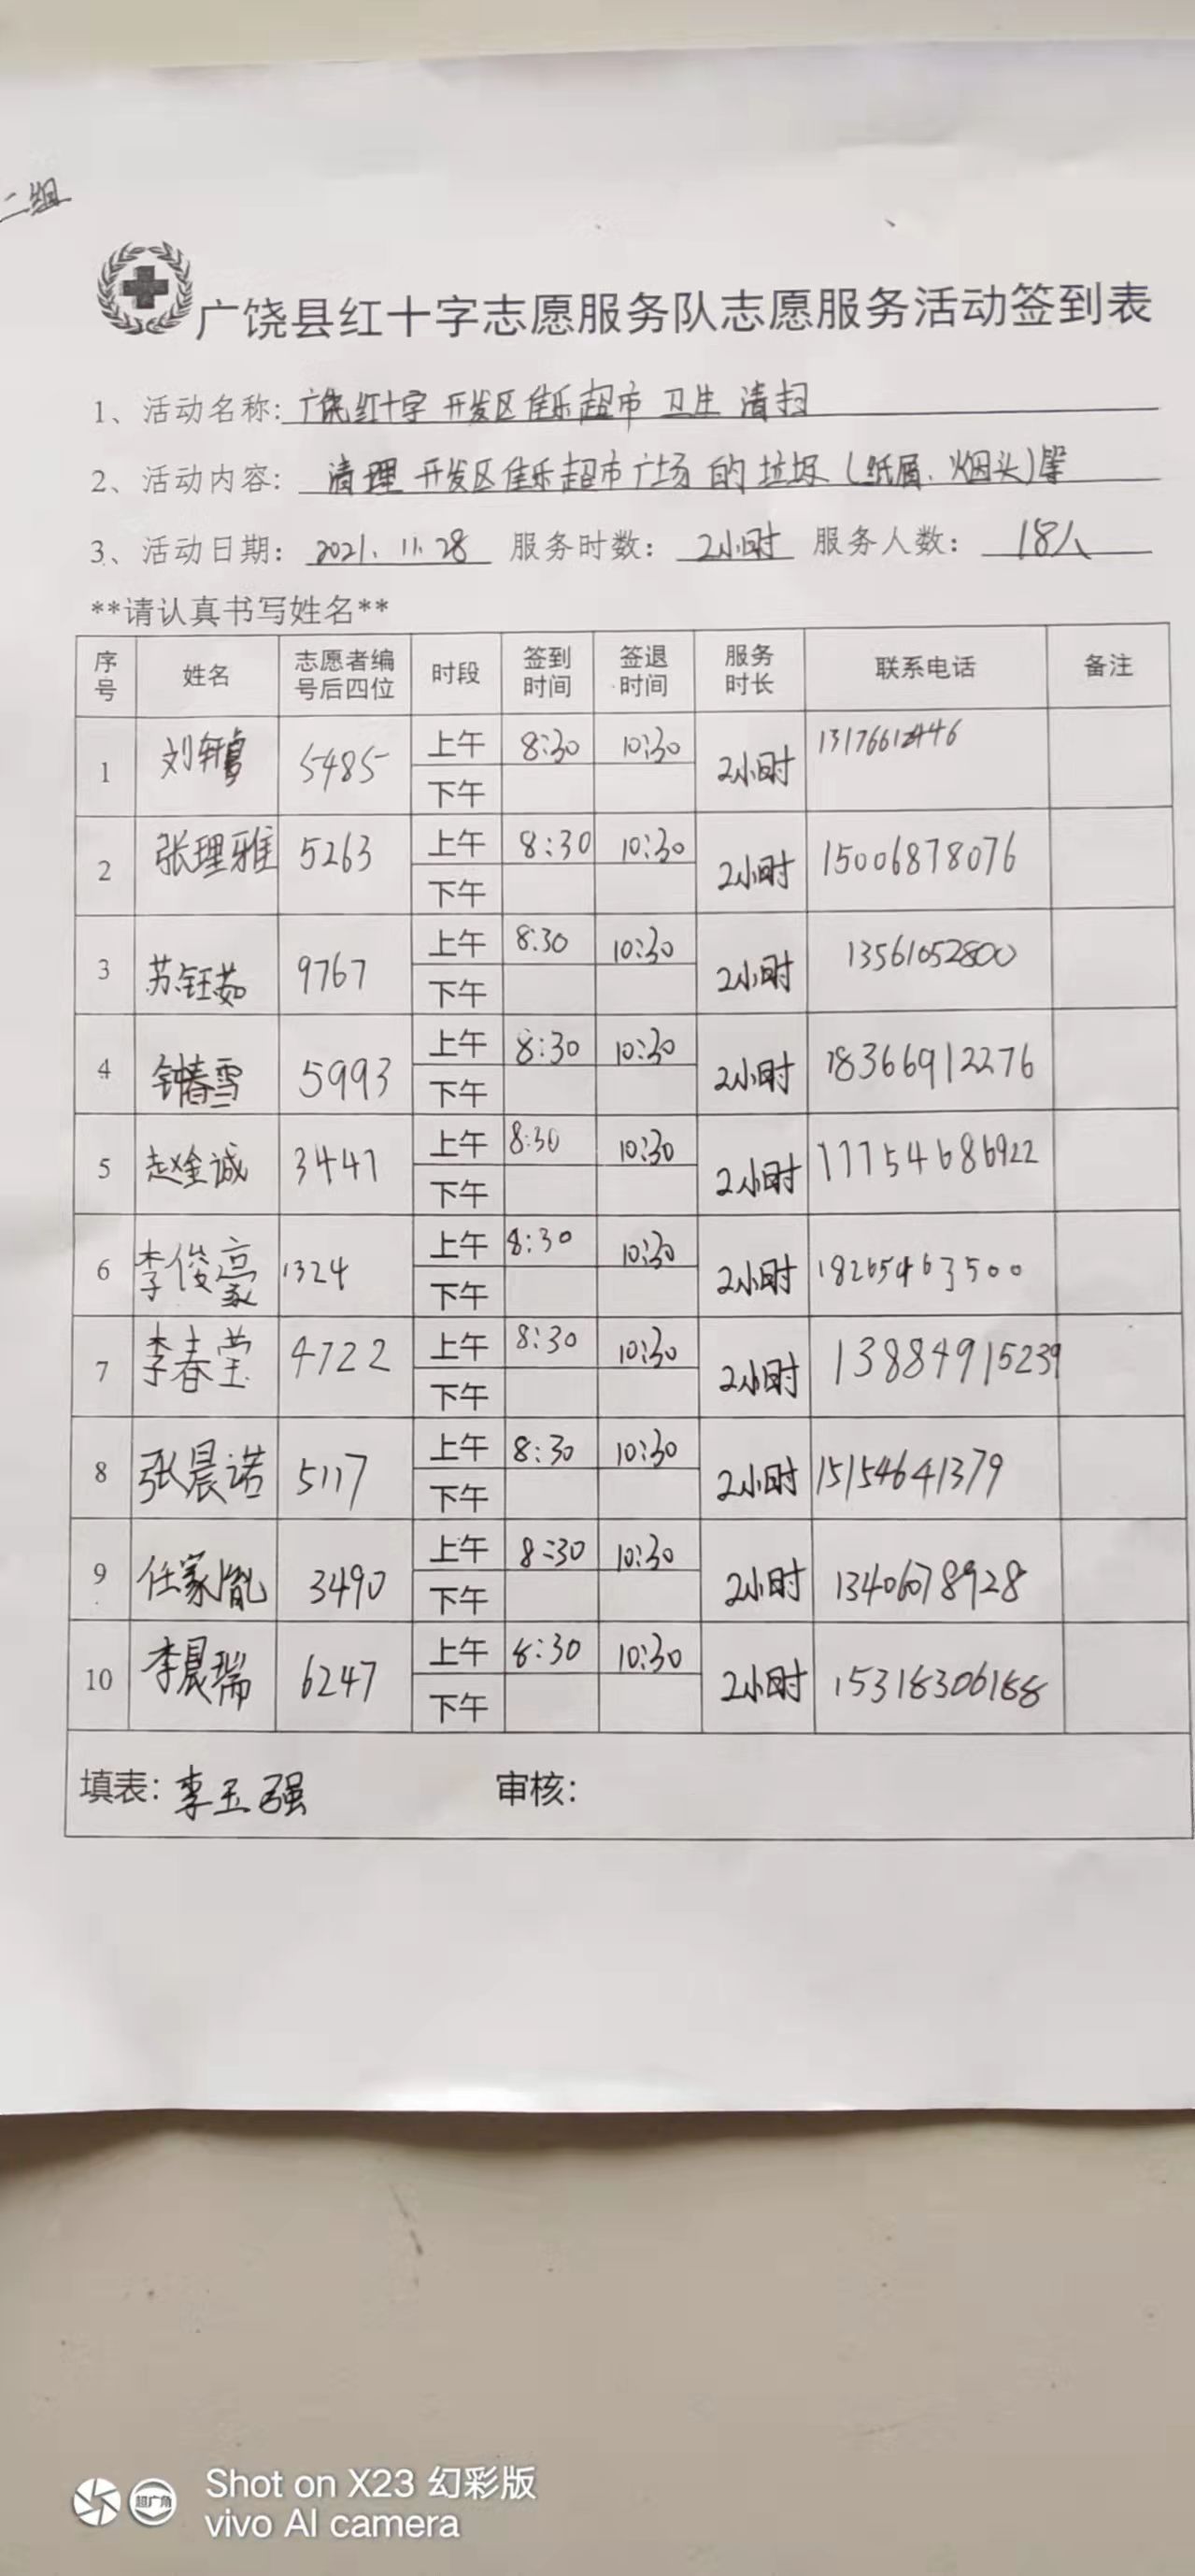 二组
广饶县红十字志愿服务队志愿服务活动签到表
1、活动名称: 广饶红十字 开发区佳乐超市 卫生 清扫
2、活动内容: 清理 开发区佳乐超市广场 的 垃圾 (纸屑、烟头)等
3、活动日期: 2021.11.28 服务时数: 2小时 服务人数: 18人
**请认真书写姓名**
序号 姓名 志愿者编号后四位 时段 签到时间 签退时间 服务时长 联系电话 备注
1 刘轩 5485 上午 8:30 10:30 2小时
下午
2 张理雅 5263 上午 8:30 10:30 2小时 15006878076
下午
3 苏钰茹 9767 上午 8:30 10:30 2小时 13561052800
下午
4 钟春雪 5993 上午 8:30 10:30 2小时 18366912276
下午
5 赵金诚 3447 上午 8:30 10:30 2小时 17754686922
下午
6 李俊豪 1324 上午 8:30 10:30 2小时 18265463500
下午
7 李春莹 4722 上午 8:30 10:30 2小时 13884915239
下午
8 张晨诺 5117 上午 8:30 10:30 2小时 15154641379
下午
9 任家胤 3490 上午 8:30 10:30 2小时 13406078928
下午
10 李晨瑞 6247 上午 8:30 10:30 2小时 15318306188
下午
填表: 李玉强 审核:
超广角
Shot on X23 幻彩版
vivo AI camera